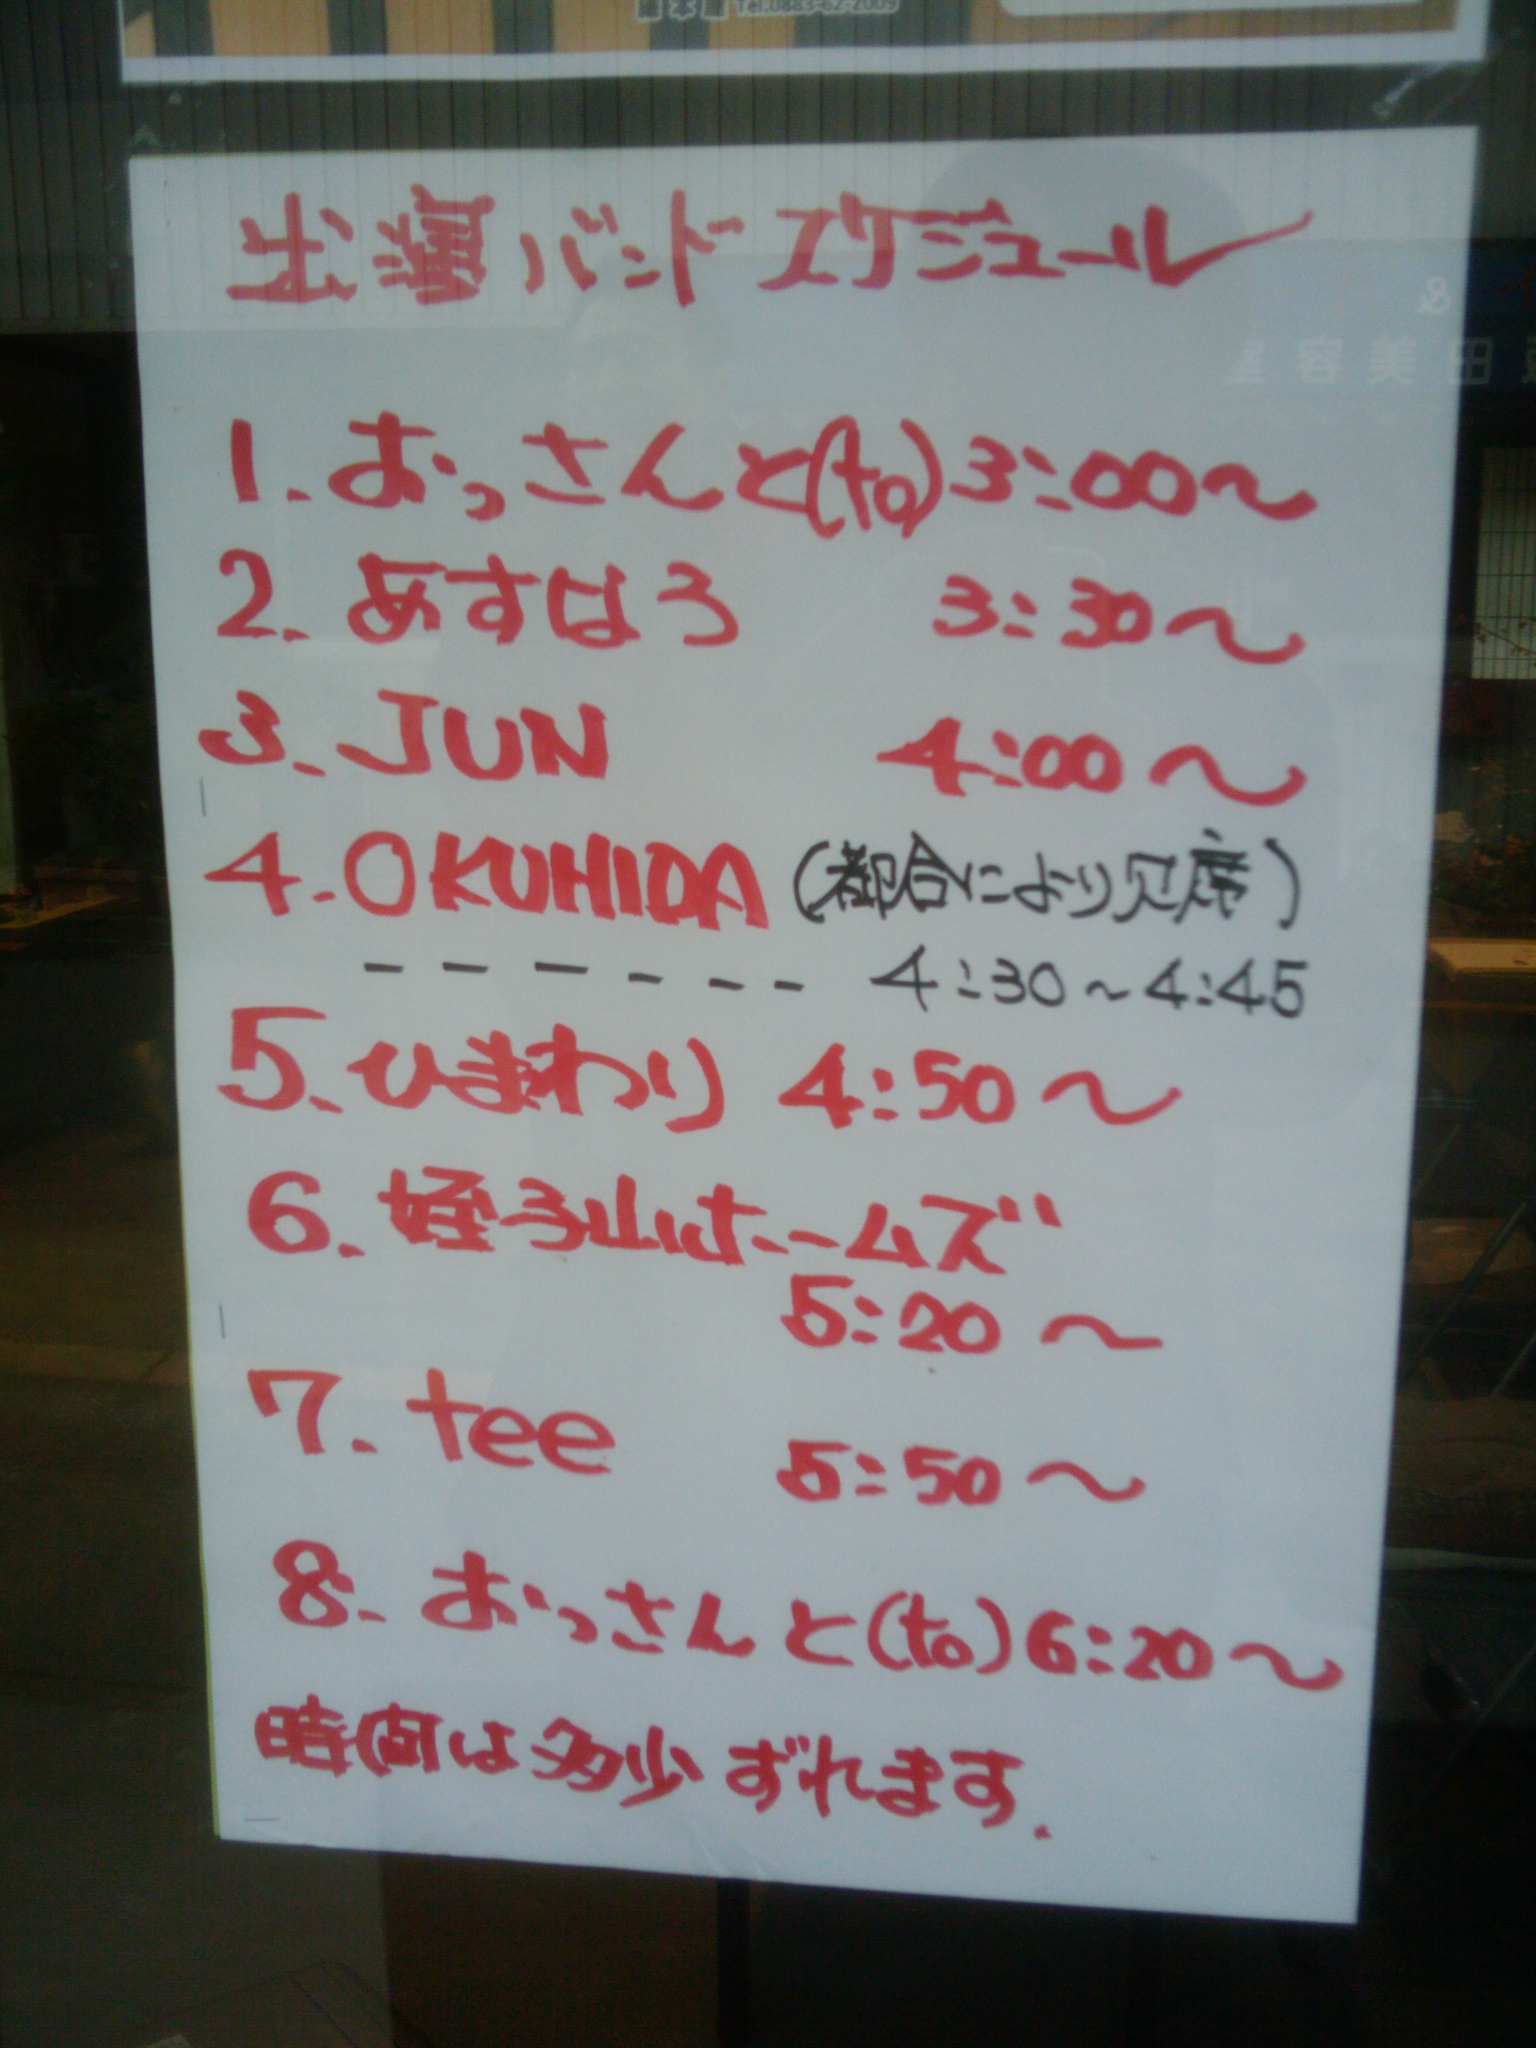 Tel.0883-62-2009
出演バンドスケジュール
1. おっさんと(to) 3:00〜
2. あすはろ 3:30〜
3. JUN 4:00〜
4. OKUHIDA (都合により欠席)
------ 4:30〜4:45
5. ひまわり 4:50〜
6. 蛭子山ホームズ
5:20〜
7. tee 5:50〜
8. おっさんと(to) 6:20〜
時間は多少ずれます.
&
田美容室